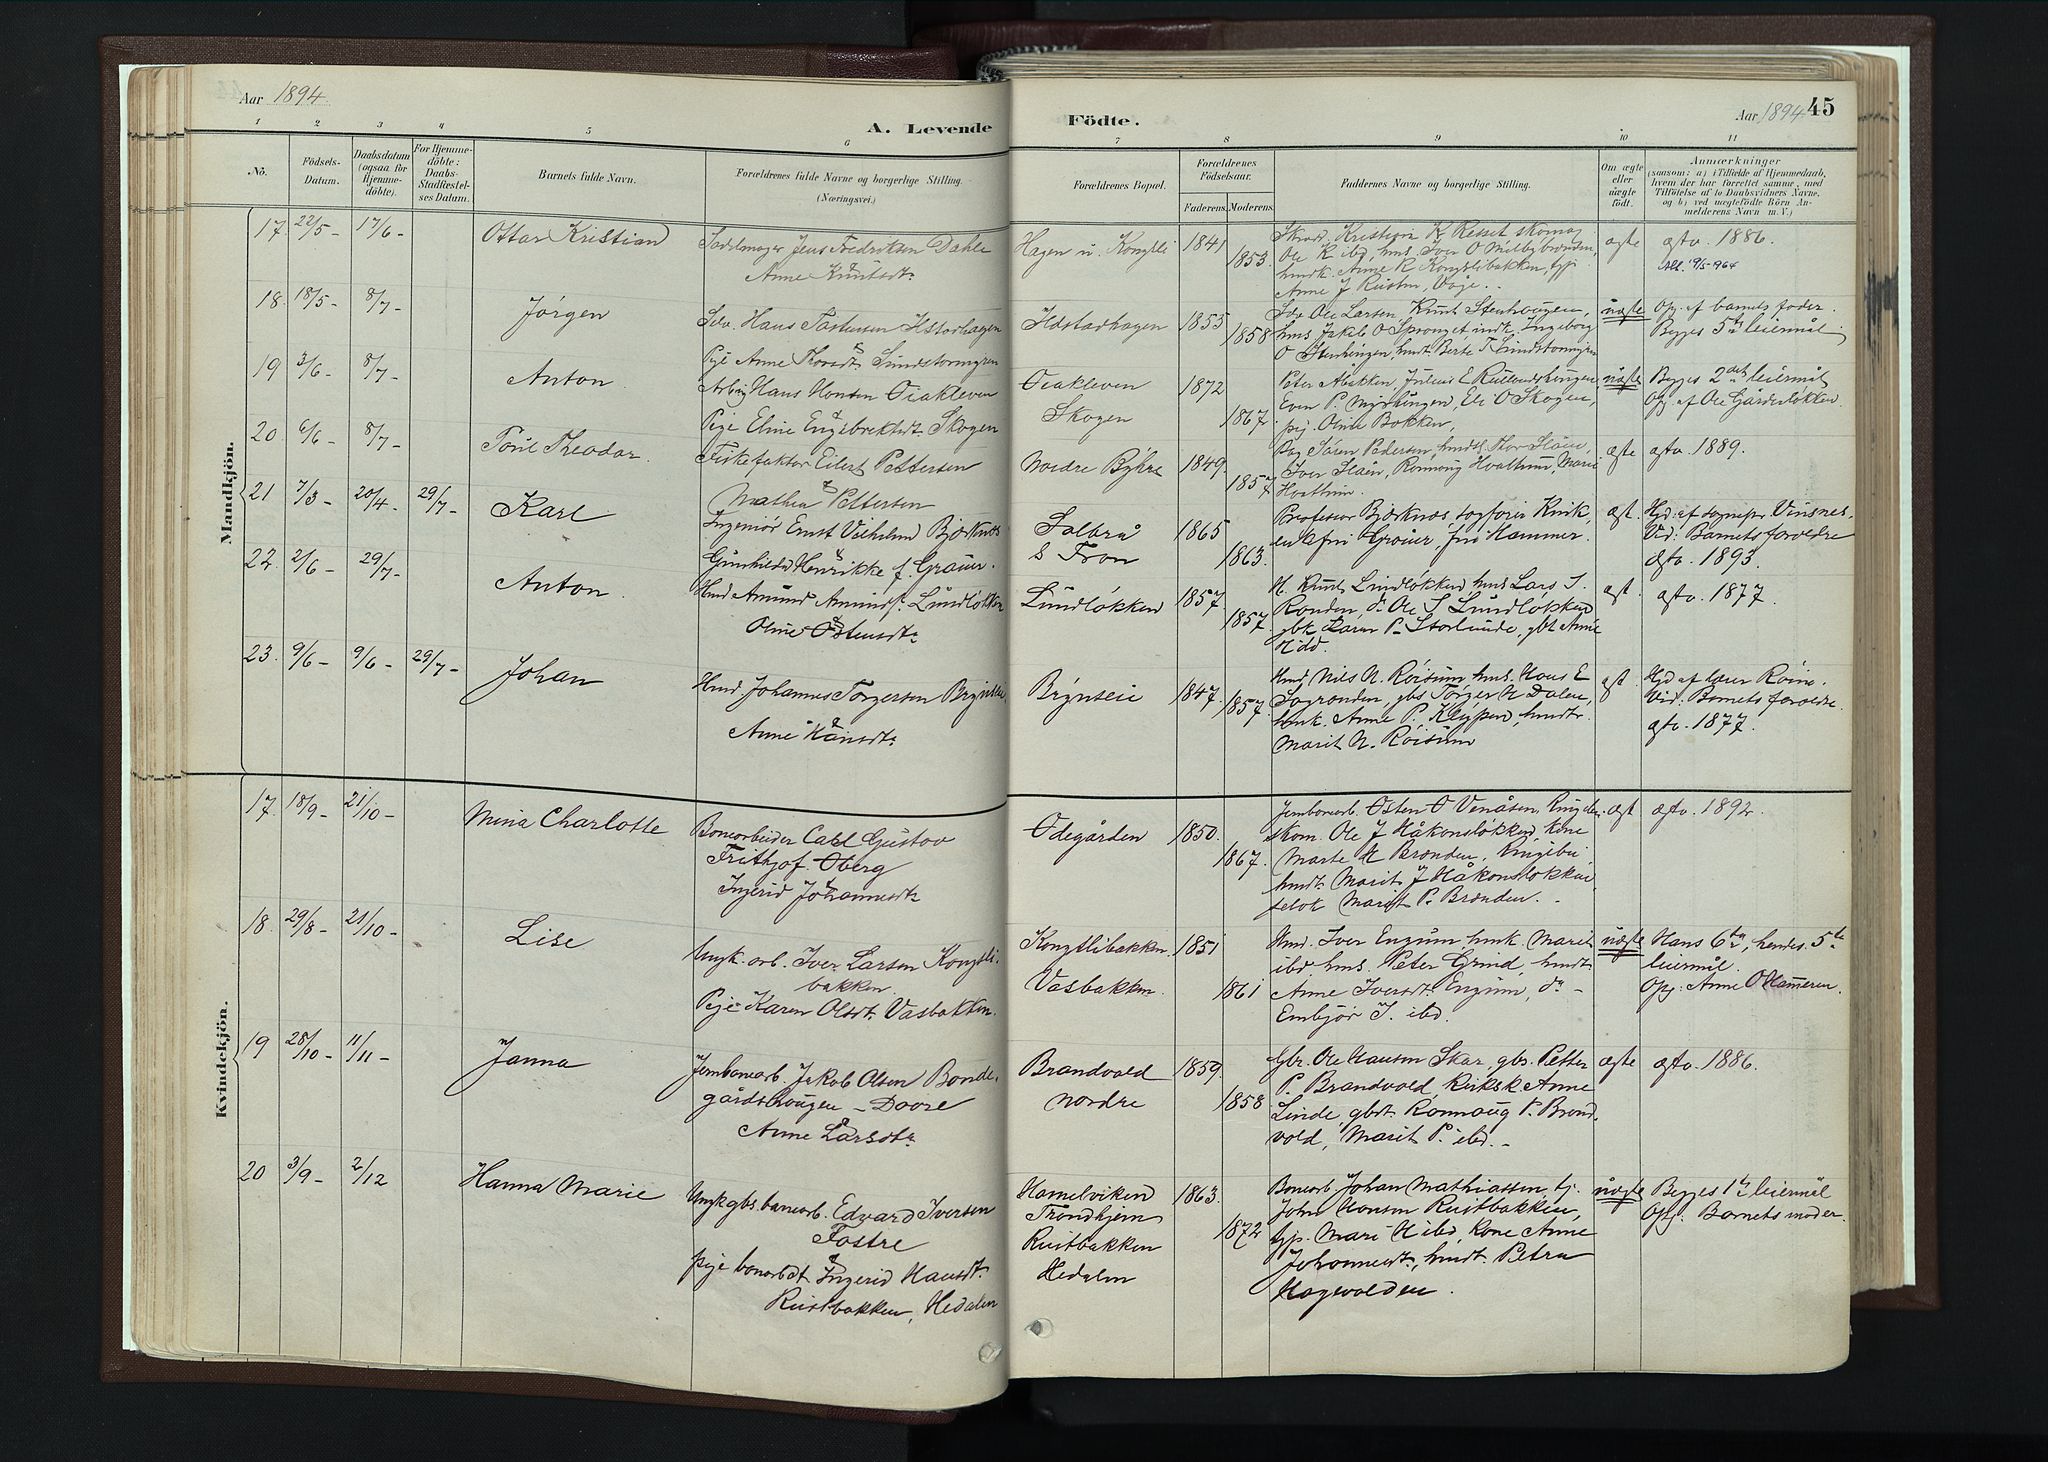 Aar 1894.
A. Levende
Födte.
Aar 1894 45
1 2 3 4 5 6 7 8 9 10 11
No.
Födsels-Datum.
Daabsdatum (ogsaa for Hjemme-döbte).
For Hjemme-döbte: Daabs-Stadfæstel-ses Datum.
Barnets fulde Navn.
Forældrenes fulde Navne og borgerlige Stilling. (Næringsvei.)
Forældrenes Bopæl.
Forældrenes Födselsaar.
Faderens. Moderens.
Faddernes Navne og borgerlige Stilling.
Om ægte eller uægte födt.
Anmærkninger
(saasom: a) i Tilfælde af Hjemmedaab, hvem der har forrettet samme, med Tilföielse af to Daabsvidners Navne, og b) ved uægtefödte Börn An-melderens Navn m. V.)
Mandkjön.
17. 22/5- 17/6-
Ottar Kristian
Sadelmager Jens Fredriksen Dahle
Anne Knutsdt:
Hagen u. Kongsli
1841
1853.
Anne R Kongslibakken,
ægte
ægtv. 1886.
18. 18/5- 8/7-
Jørgen
Hans Ilstadhagen
Pige Anne Sundstormyren
Ilstadhagen
1855
1858
Ole Larsen, Knut Stenhougen,
hms Jakob O Spranget indk Ingeborg
uægte
Op. af barnets fader.
Begges 5te leiermål.
19 3/6- 8/7-
Anton.
Hans Oiakleven
Pige Eline Engebrektsdt: Skogen
Oiakleven
Skogen
1872
1867.
Peter Åbakken, Julius E
Even P. Myrhaugen, Eli O Skogen,
pig. Oline Bakken,
uægte
Begges 2det leiermål
Opg af Ole Gårdsløkken.
20. 6/6- 8/7-
Theodor.
Eilert Pettersen
Mathea Pettersen
Nordre Bykre
1849.
1857
Søren Pedersen,
Iver Slåen, Ronnoug Hvattum, Marie
Hvattum.
ægte
ægtv. 1889.
21 7/3- 20/4- 29/7-
Karl
Ingeniör Ernst Vilhelm Bjerknes
Gunhilda Henrikke f.
Solbrå
s Fron
1865
1863.
Professor Bjerknes, sagfører
fru Hammer.
ægt.
Hjd. af sognepr Vinsnes.
Vid: Barnets forældre
ægtv. 1893.
22. 2/6- 29/7-
Anton.
Hmd Amund Amunds: Lundløkken
Oline Østensdt:
Lundløkken
1857.
1857.
Knud Lindløkken hms Lars S.
Ronden, do Ole S Lundløkken
gbk Karen P. Storlunde, gbk Anne
ægt.
ægtv. 1877.
23. 9/6- 9/6- 29/7-
Johan
Hmd. Johannes Torgersen Brynslie
Anne Hansdt:
Brynslie
1847.
1857.
Hmd Nils N. Røisum hms. Hans E
gbs Torger H Dalen,
hmk. Anne P. Klypen, hmdt:
Marit N. Røisum
ægt.
Hjd af lærer
Vid: Barnets forældre
ægtv. 1877.
Kvindekjön.
17. 18/9- 21/10-
Mina Charlotte
Banearbeider Carl Gustav
Frithjof Oberg
Ingerid Johannesdt:
Ødegården
1850.
1867.
Jernbanearb. Østen O Venåsen, Ringebu
skom. Ole J Håkonsløkken, kone
Marte H Brenden, Ringebu,
hmdt: Marit J Håkonsløkken
Marit P. Brenden.
ægt
ægtv. 1892.
18. 29/8- 21/10-
Lise
Ungk. arb. Iver Larsen Kongsli-
bakken.
Pige Karen Olsdt. Vasbakken.
Kongslibakken.
Vasbakken.
1851
1861
Hmd. Iver Engum, hmk. Marit
ibd, hms. Peter Grind, hmdt:
Anne Iversdt: Engum, do -
Embjør I. ibd.
uægte
Hans 6te, hendes 5te
leiermål.
Opg: Anne O Hameren.
19 28/10- 11/11-
Janna
Jernbanearb. Jakob Olsen Bonde-
gårdshougen - Dovre
Anne Larsdt:
Brandvold
nordre
1859.
1858
Gbr. Ole Hansen Skar, gbs. Petter
P. Brandvold, kirks k Anne
Linde, gbdt. Ronnoug P. Brand-
vold, Marit P. ibd.-
ægte
ægtv. 1886.
20 3/9- 2/12
Hanna Marie
Ungk gbs. banearb. Edvard Iversen
Fostre
pige banarb dt. Ingerid Hansdt:
Rustbakken, Hedalen
Hamelviken
Trondhjem
Rustbakken
Hedalen
1863.
1872
Banearb. Johan Mathiassen, tj.
John Hansen Rustbakken,
Mari H ibd, kone Anne
Johannesdt:, hmdt. Petra
Hagevolden.
uægte
Begges 1te leiermål
Opg: Barnets moder.